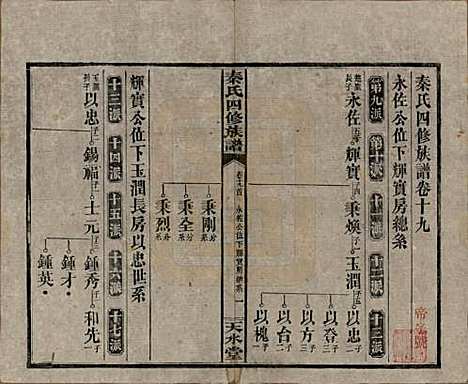 秦氏四修族譜卷十九
永佐公位下輝實房總系
第九派 第十派 十一派 十二派 十三派
長子 永佐 輝實 秉煥 玉潤 以忠
以登
以方
以台
以槐
秉剛
秉全
秉烈
秦氏四修族譜
永佐公位下輝實房
天水堂
輝實公位下玉潤長房以忠世系
十三派 十四派 十五派 十六派 十七派
玉潤長子 以忠 錫福 士元 鍾秀 和先
鍾才
鍾英